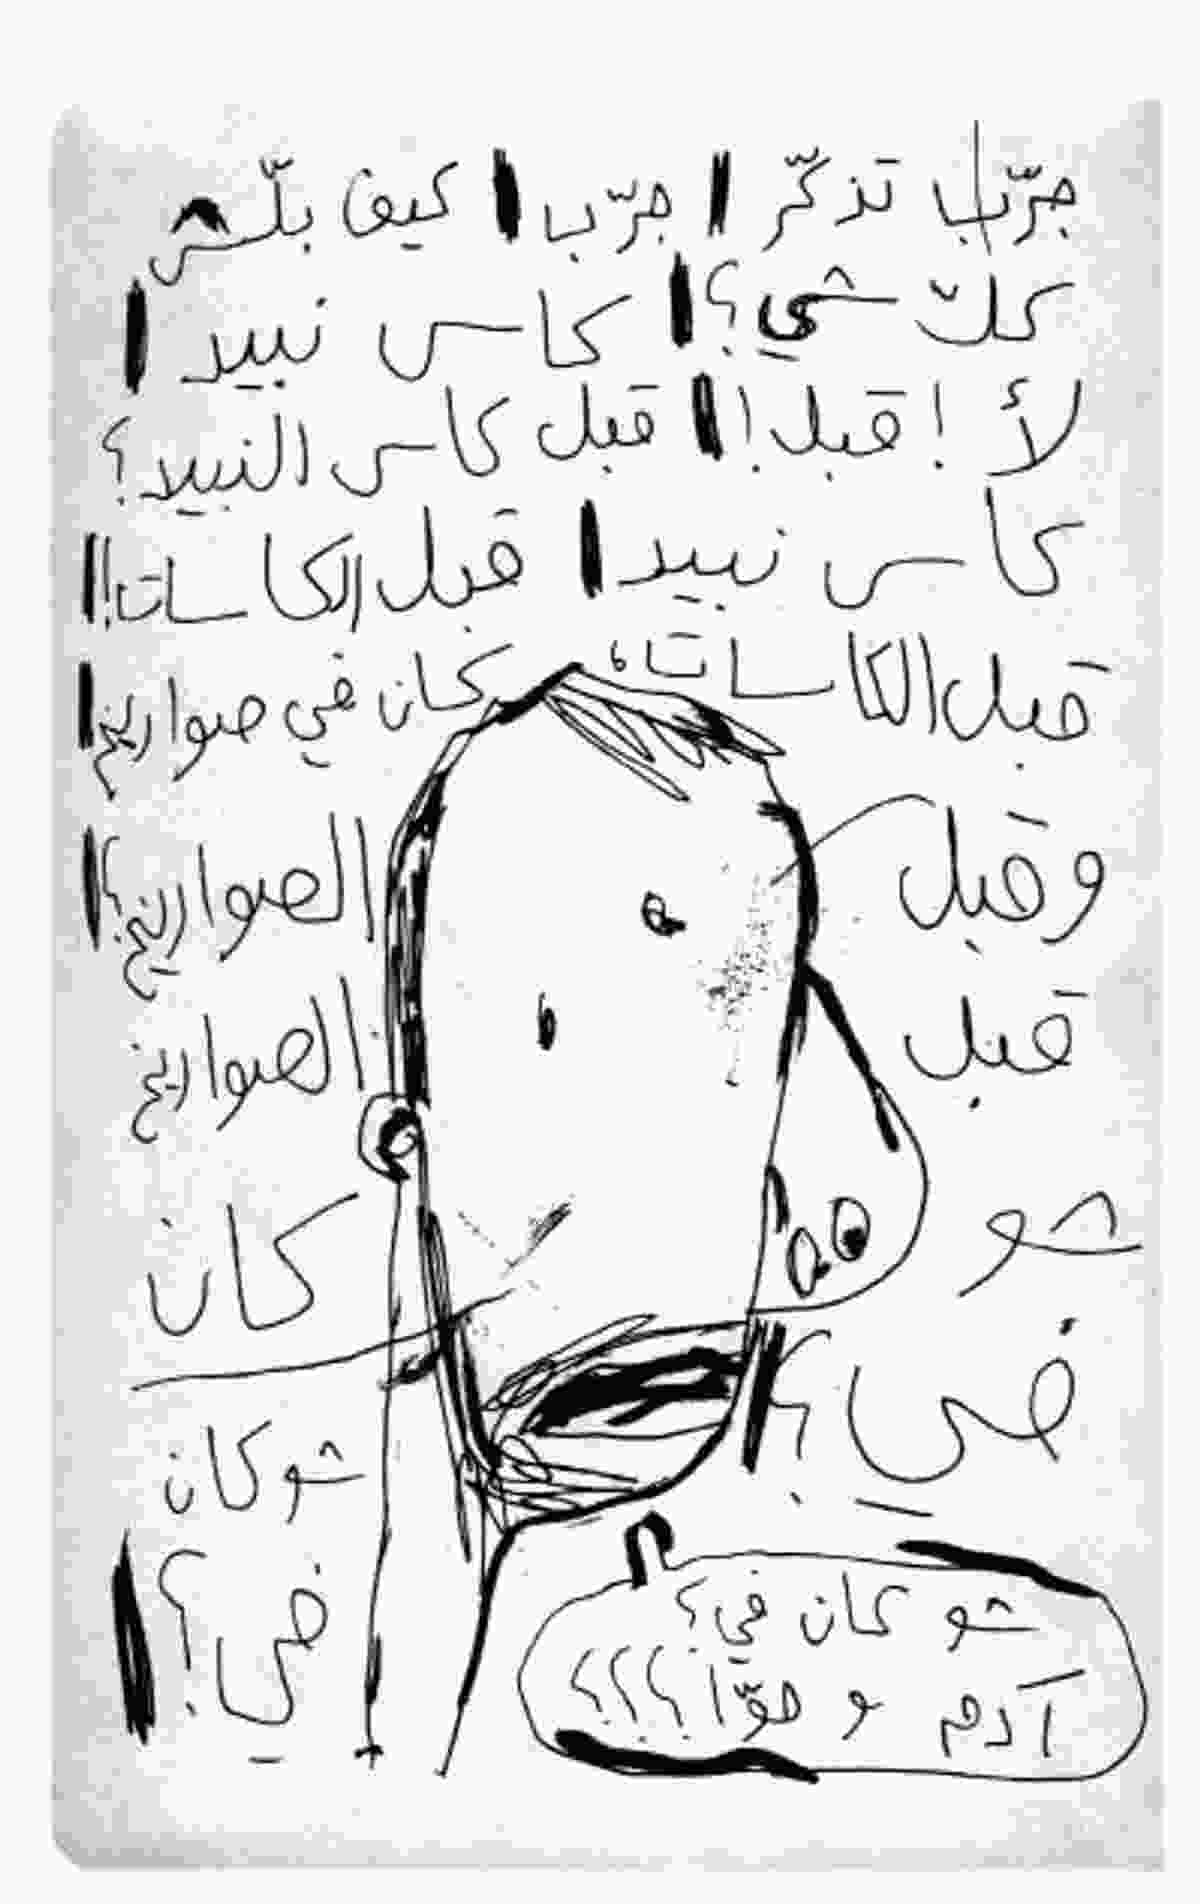 جرّب تذكّر | جرّب | كيف بلّش
كلّ شي؟ | كاس نبيد |
لأ! قبل! | قبل كاس النبيد؟
كاس نبيد | قبل الكاسات! |
قبل الكاسات، كان في صواريخ |
وقبل الصواريخ؟ |
قبل الصواريخ
شو كان
في؟ | شو كان
في؟ |
شو كان في؟
آدم و حوّا؟؟؟